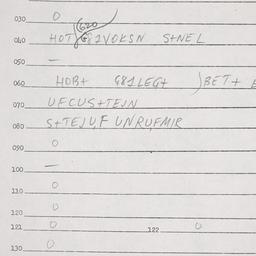 030 O
G20
040 HOT G81VOKSN S+NEL
050 —
060 HOB+ G81LEG+ )BET+
070 UFCUS+TEJN
080 S+TEJUF UNRUFMIR
090 O
100 —
110 O
120 O
121 O 122 O
130 O